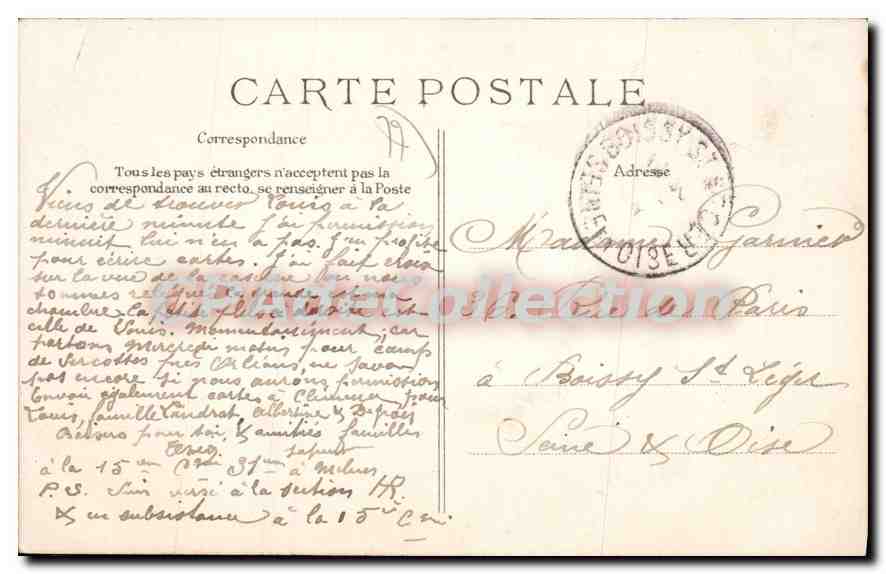 CARTE POSTALE
Correspondance
Tous les pays étrangers n'acceptent pas la
correspondance au recto, se renseigner à la Poste
Adresse
BOISSY-ST-LÉGER
SEINE-ET-OISE
Viens de trouver Louis à la
dernière minute J'ai permission
minuit lui n'en a pas. J'en profite
pour écrire cartes. J'ai fait croix
sur la vue de la caserne où nous
sommes
chambre La
ville de Louis. car
partons Mercredi matin pour camp
de Cercottes près Orléans, ne savons
pas encore si nous aurons permission
Envoie également cartes à pour
Louis, famille Landrat Albertine & Depois
Baisers pour toi, & amitiés familles
sapeur
à la 15 em 31 em à
P.S. Suis versé à la section HR
& en subsistance à la 15 e Cie
Madame Garnier
Rue de Paris
à Boissy St Léger
Seine & Oise